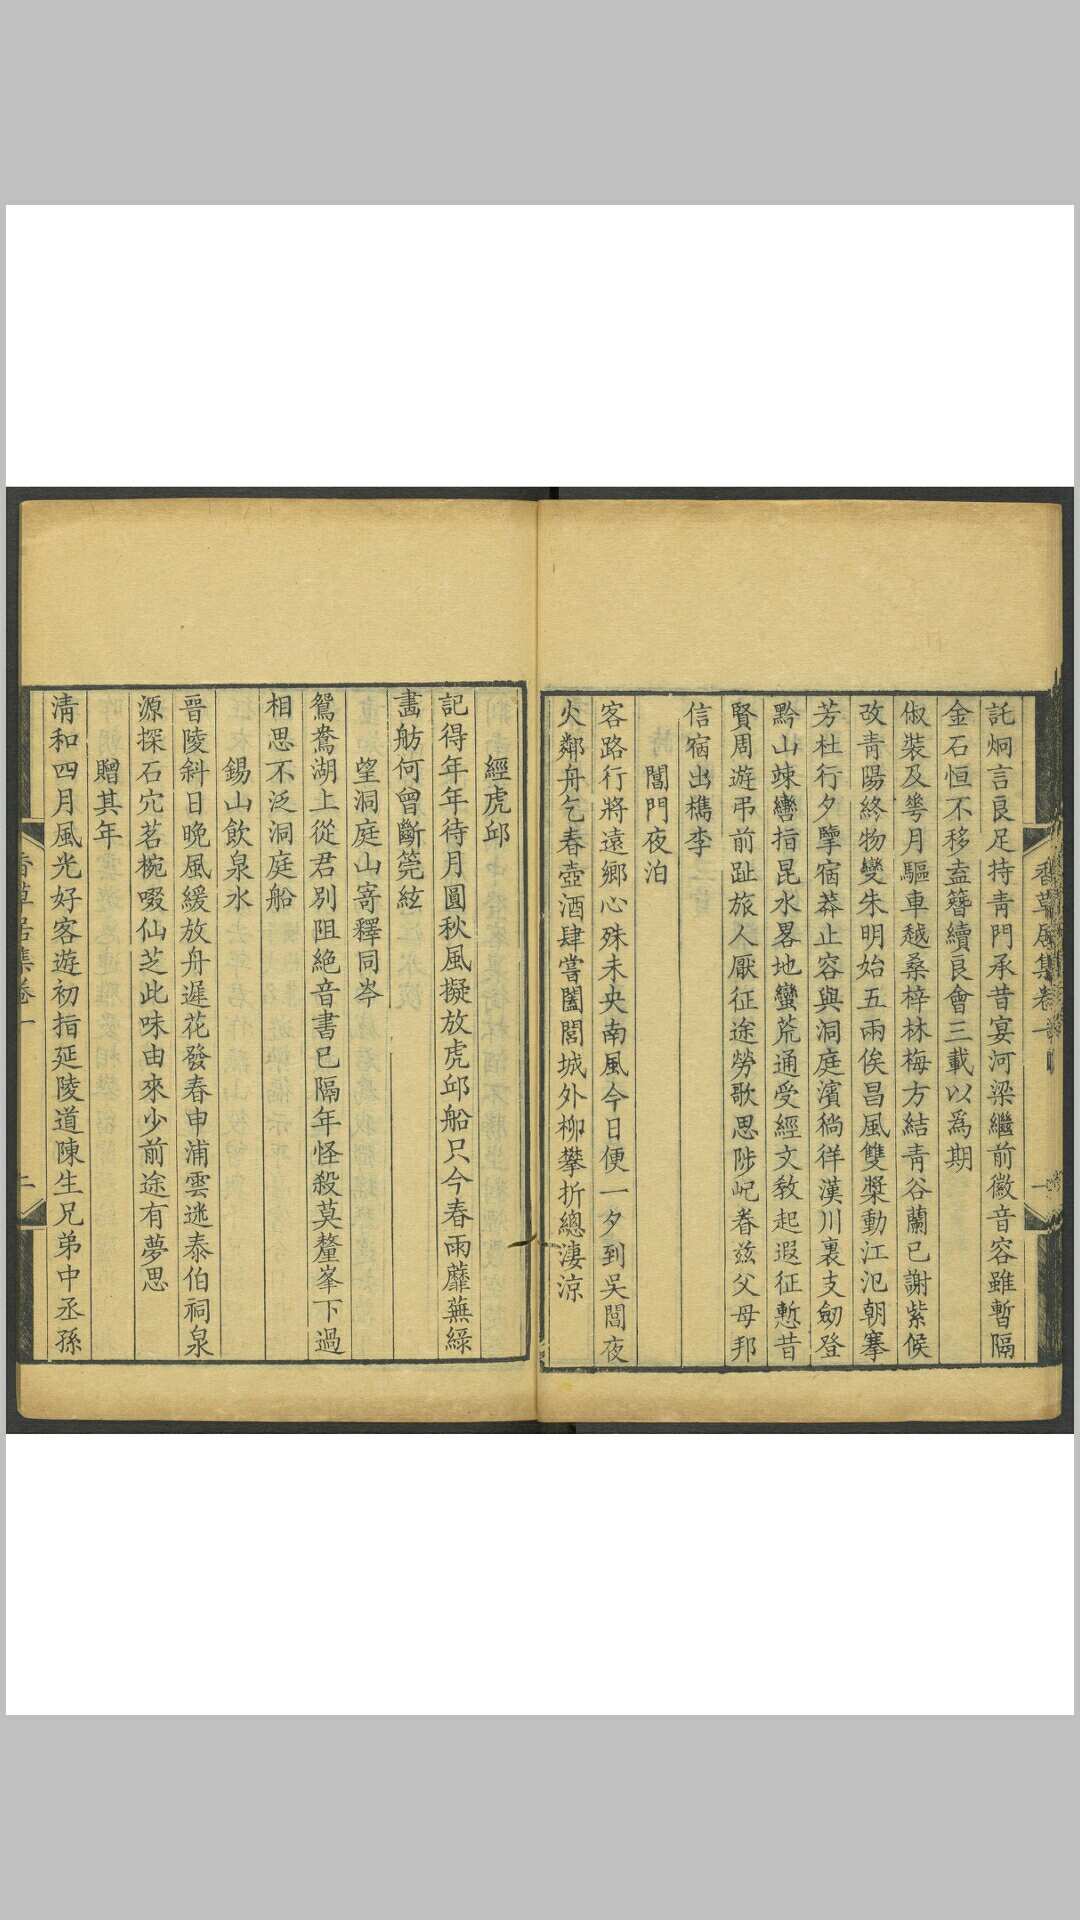 香草居集卷一
託炯言良足持靑門承昔宴河梁繼前徽音容雖暫隔
金石恒不移盍簪續良會三載以爲期
俶裝及夸月驅車越桑梓林梅方結靑谷蘭已謝紫候
改靑陽終物變朱明始五兩俟昌風雙槳動江汜朝搴
芳杜行夕擥宿莽止容與洞庭濱徜徉漢川裏支劒登
黔山竦轡指昆水畧地蠻荒通受經文敎起遐征慙昔
賢周遊弔前趾旅人厭征途勞歌思陟屺眷兹父母邦
信宿出檇李
閶門夜泊
客路行將遠鄉心殊未央南風今日便一夕到吳閶夜
火鄰舟乞春壺酒肆嘗闔閭城外柳攀折總淒涼
經虎邱
記得年年待月圓秋風擬放虎邱船只今春雨蘼蕪綠
畵舫何曾斷筦絃
望洞庭山寄釋同岑
鴛鴦湖上從君別阻絶音書已隔年怪殺莫釐峯下過
相思不泛洞庭船
錫山飲泉水
晉陵斜日晚風緩放舟遲花發春申浦雲迷泰伯祠泉
源探石穴茗椀啜仙芝此味由來少前途有夢思
贈其年
淸和四月風光好客遊初指延陵道陳生兄弟中丞孫
香草居集卷一
二